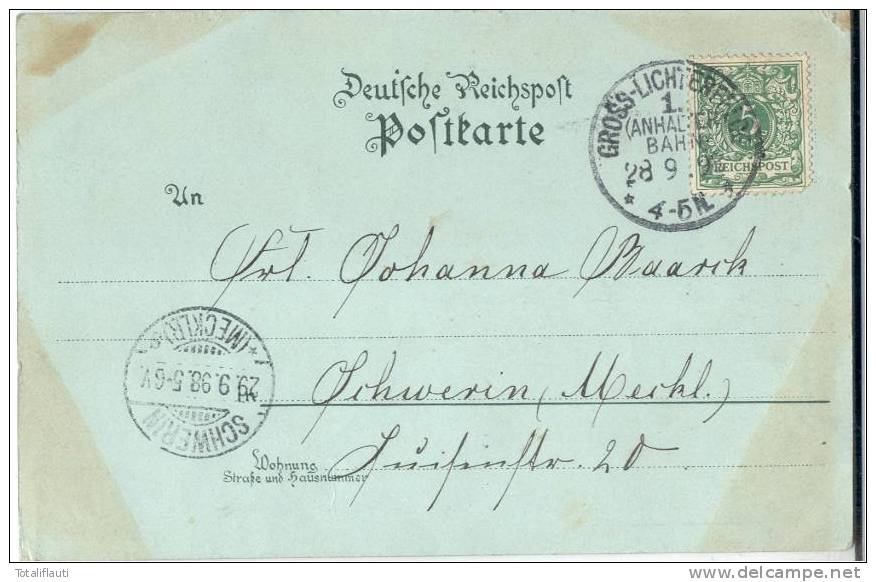 Deutsche Reichspost
Postkarte
GROSS-LICHTERFELDE
1.
(ANHALTER
BAHN)
28 9 9
4-5N.
5
REICHSPOST
An
Frl. Johanna Baarck
(MECKLB)
29.9.98.5-6V.
SCHWERIN
in
Schwerin (Meckl.)
Wohnung
Straße und Hausnummer
Luisenstr. 20
Totaliflauti
www.delcampe.net